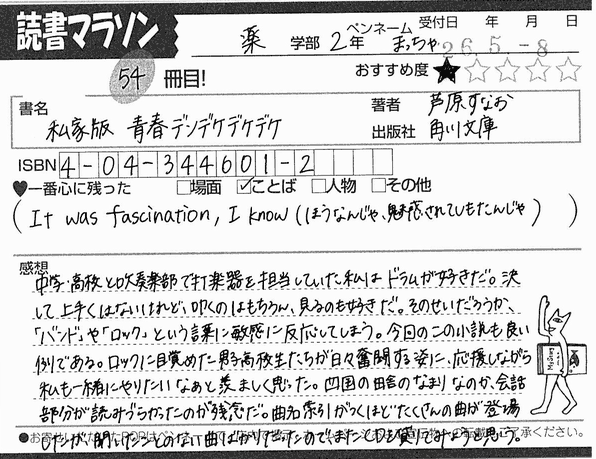 読書マラソン
薬 学部 2年 ペンネーム まっちゃ 受付日 年 月 日
26.5.-8
54 冊目! おすすめ度 ★☆☆☆☆
書名 私家版 青春デンデケデケデケ
著者 芦原すなお
出版社 角川文庫
ISBN 4-04-344601-2
♥一番心に残った □場面 ☑ことば □人物 □その他
(It was fascination, I know (ほうなんじゃ、魅惑されてしもたんじゃ))
感想
中学・高校と吹奏楽部で打楽器を担当していた私はドラムが好きだ。決
して上手くはないけれど、叩くのはもちろん、見るのも好きだ。そのせいだろうか、
「バンド」や「ロック」という言葉に敏感に反応してしまう。今回のこの小説も良い
例である。ロックに目覚めた男子高校生たちが日々奮闘する姿に、応援しながら
私も一緒にやりたいなあと羨ましく思った。四国の田舎のなまりなのか、会話
部分が読みづらかったのが残念だ。曲名索引がつくほどたくさんの曲が登場
したが、聞いたことのない曲ばかりだったので、またCDを買ってみようと思う。